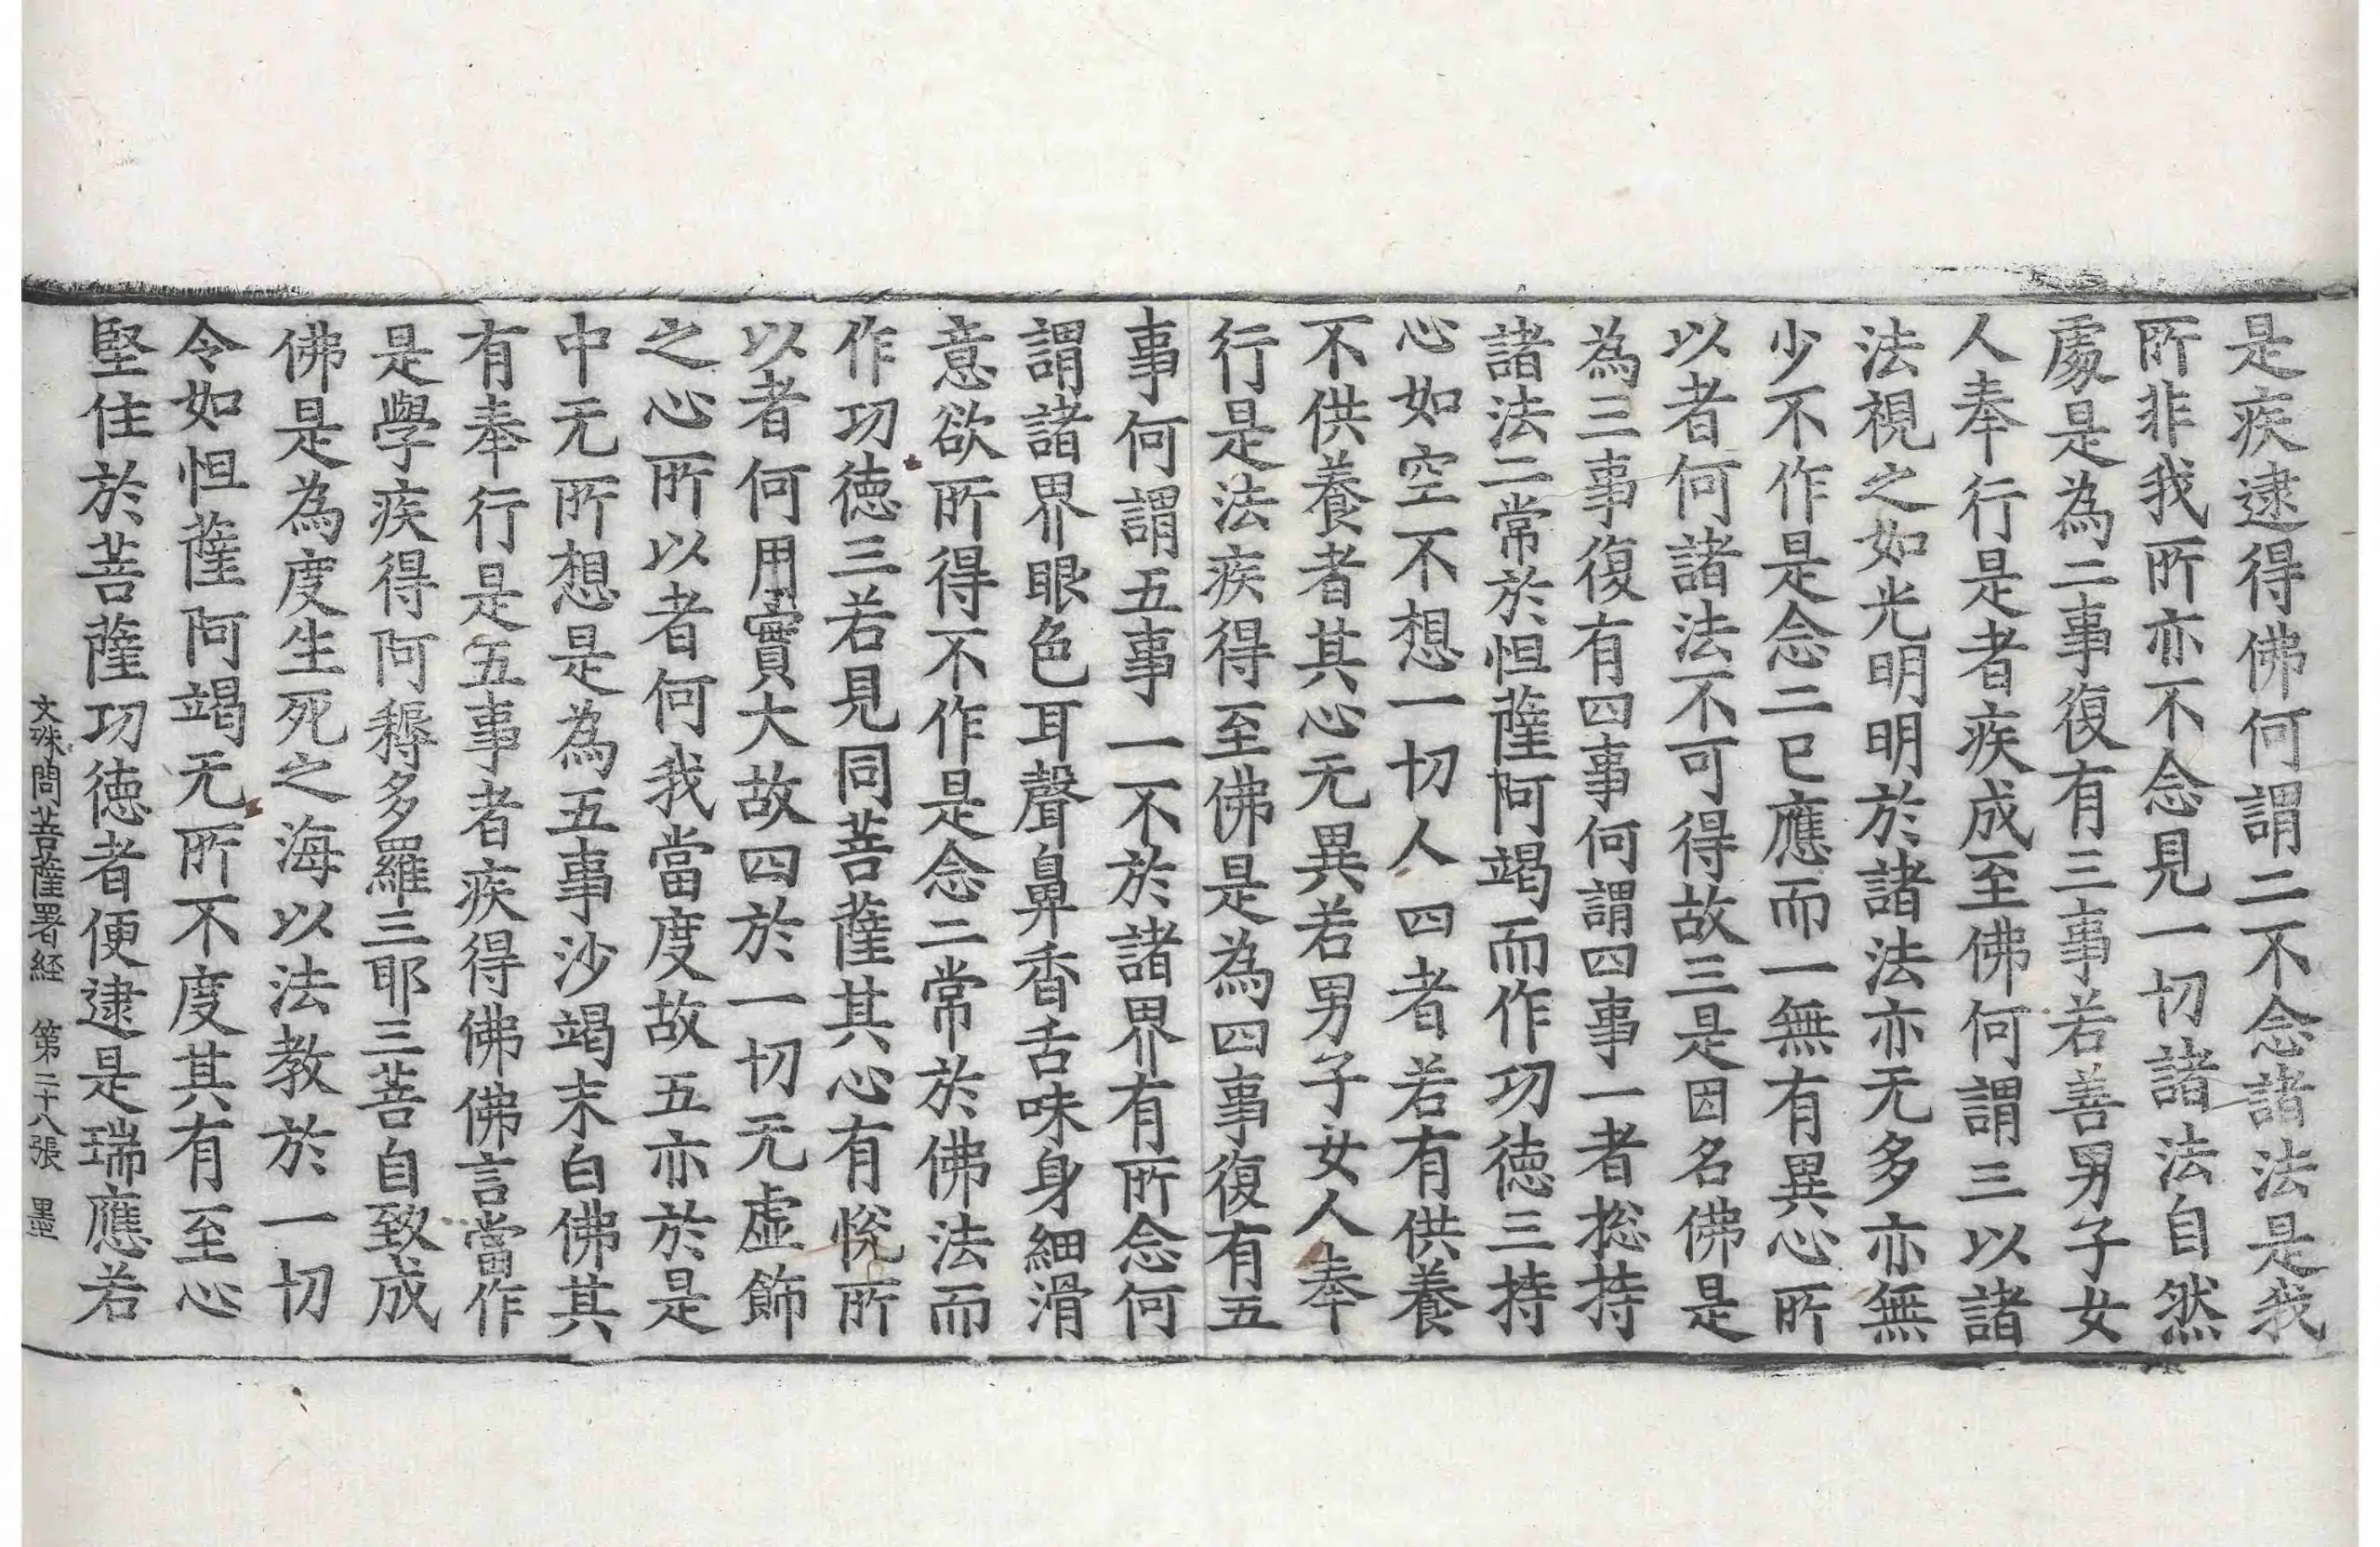 是疾逮得佛何謂二不念諸法是我
所非我所亦不念見一切諸法自然
處是為二事復有三事若善男子女
人奉行是者疾成至佛何謂三以諸
法視之如光明明於諸法亦无多亦無
少不作是念二已應而一無有異心所
以者何諸法不可得故三是因名佛是
為三事復有四事何謂四事一者捴持
諸法二常於怛薩阿竭而作功德三持
心如空不想一切人四者若有供養
不供養者其心无異若男子女人奉
行是法疾得至佛是為四事復有五
事何謂五事一不於諸界有所念何
謂諸界眼色耳聲鼻香舌味身細滑
意欲所得不作是念二常於佛法而
作功德三若見同菩薩其心有悅所
以者何用實大故四於一切无虛飾
之心所以者何我當度故五亦於是
中无所想是為五事沙竭末白佛其
有奉行是五事者疾得佛佛言當作
是學疾得阿耨多羅三耶三菩自致成
佛是為度生死之海以法教於一切
令如怛薩阿竭无所不度其有至心
堅住於菩薩功德者便逮是瑞應若
文殊問菩薩署経 第二十八張 墨